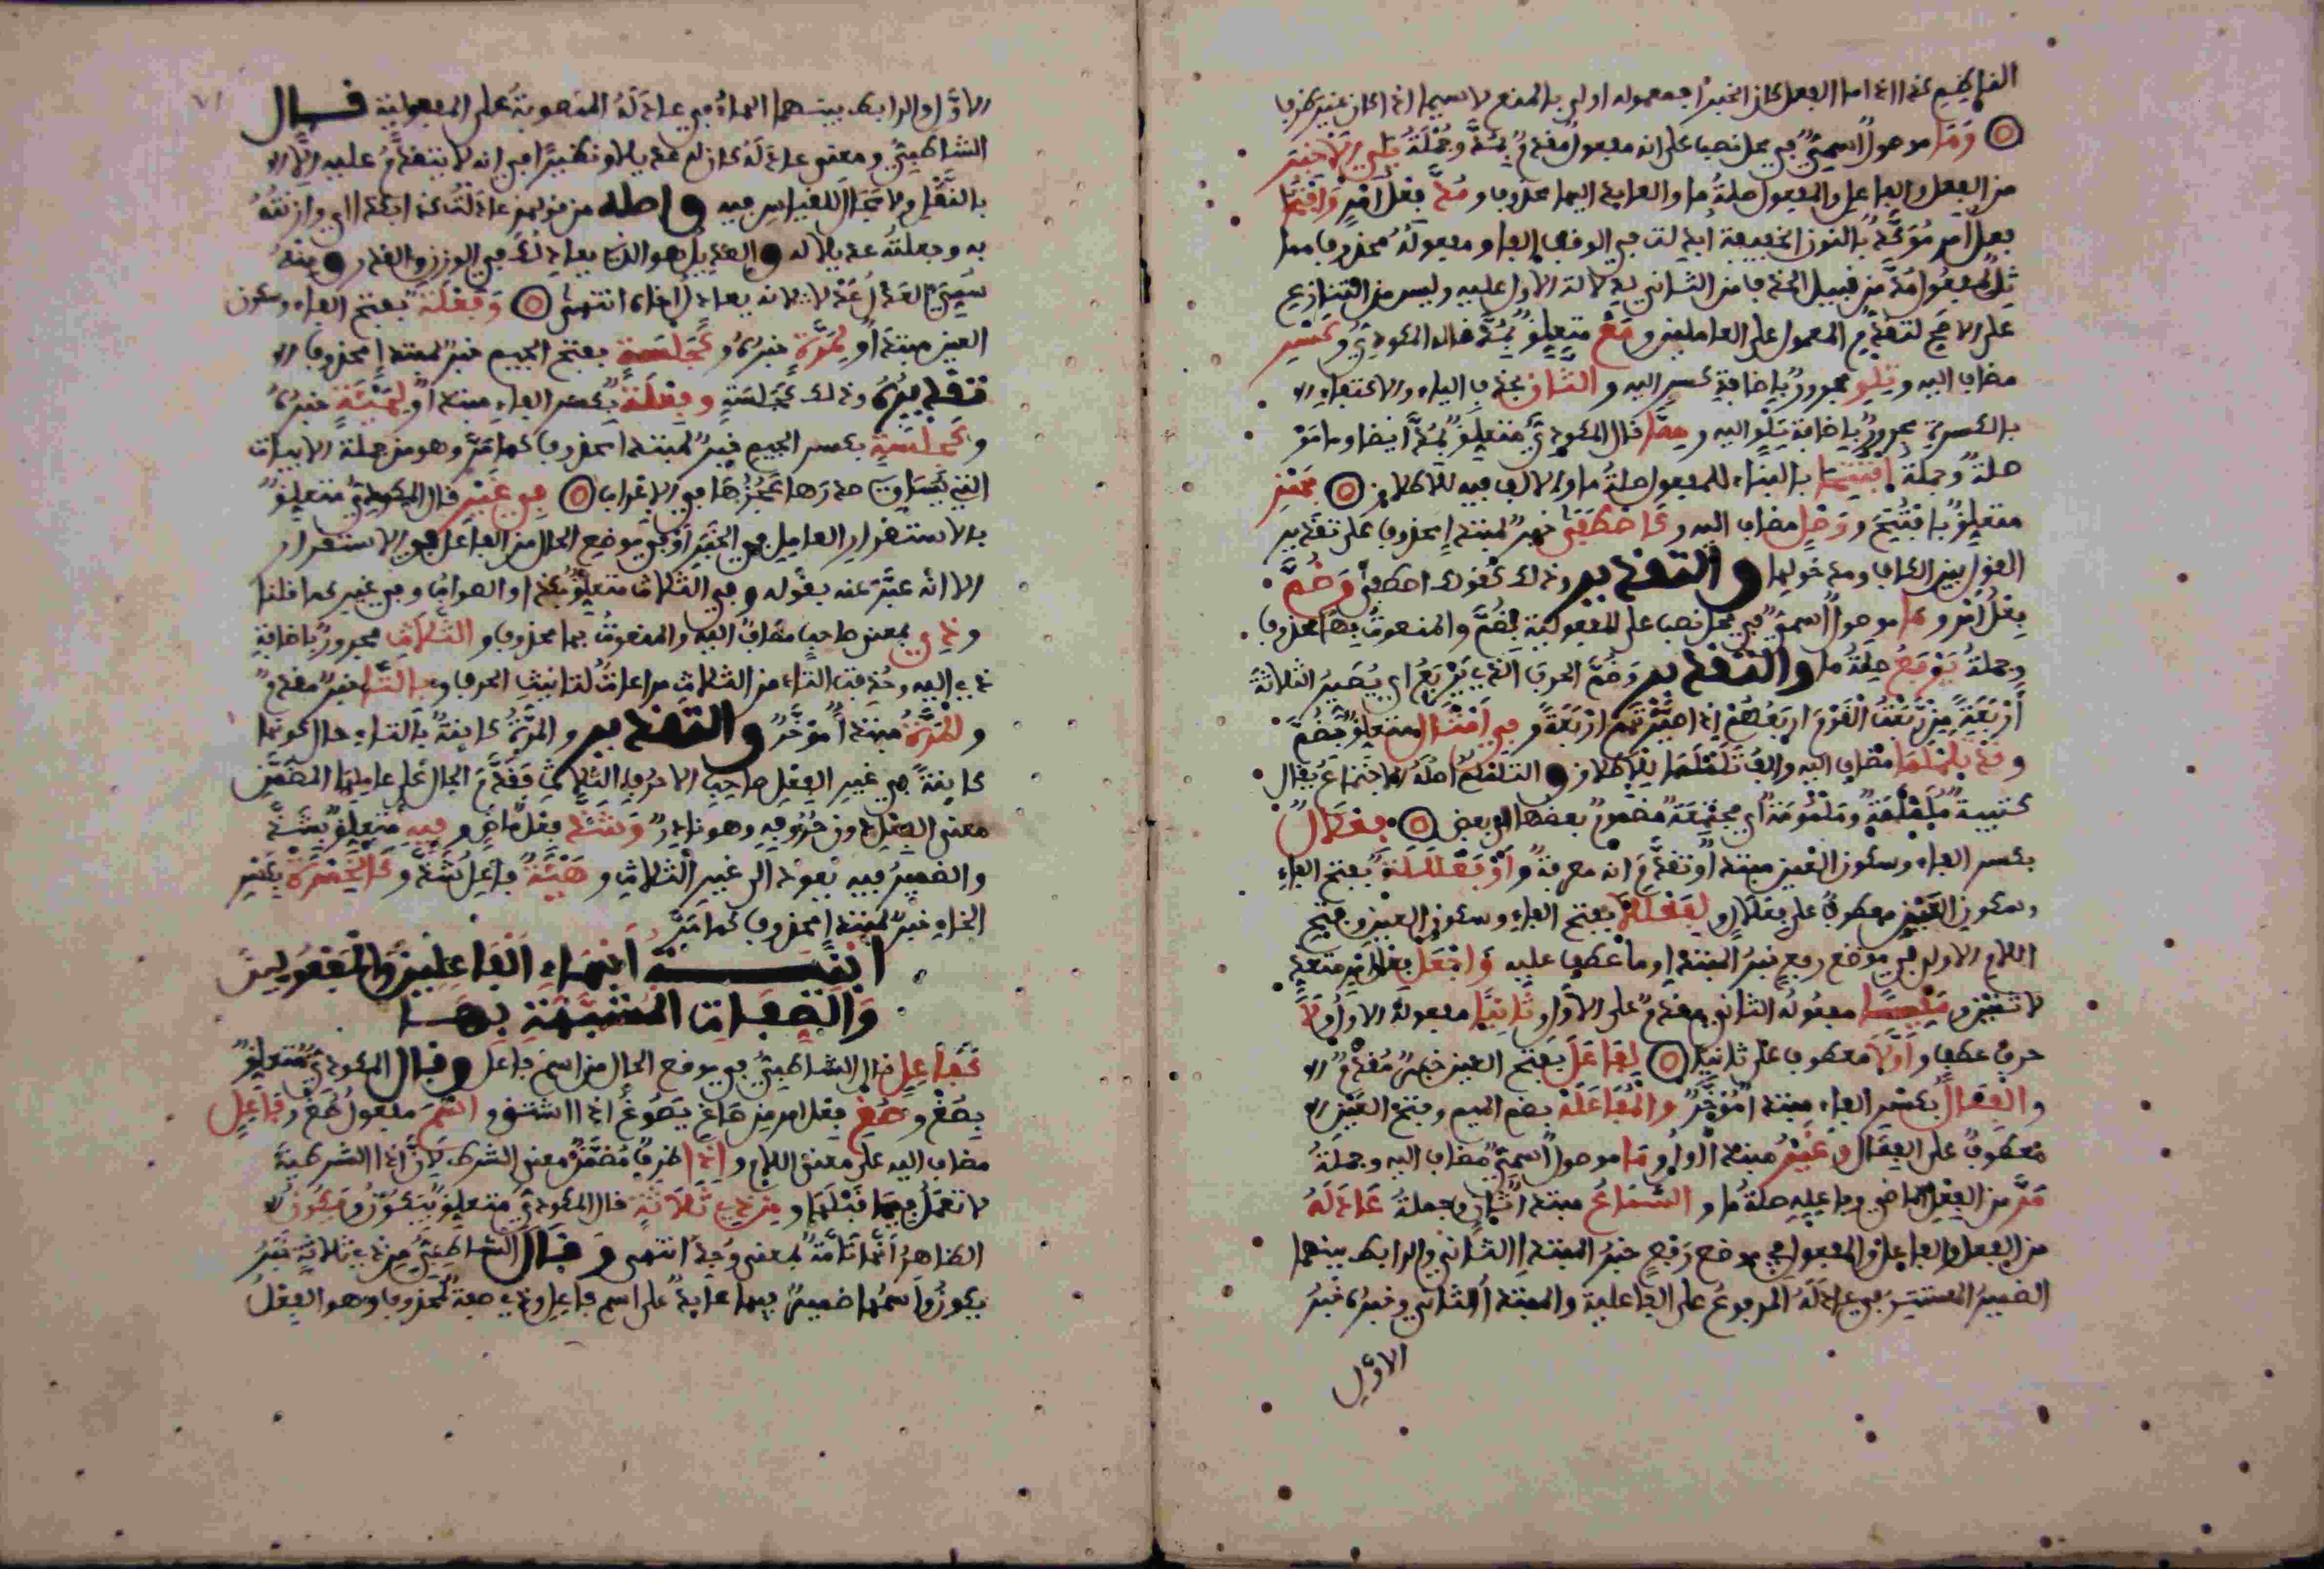 وما موصول اسمي في محل نصب على انه مفعول مقدم بمد وجملة يلي الاخر
من الفعل والفاعل والمفعول صلة ما والعايد اليها محذوف ومد فعل امر وافتحا
فعل امر مؤكد بالنون الخفيفة ابدلت في الوقف الفا ومفعوله محذوف مما
على الاصح لتقدم المعمول على العاملين ومع متعلق بمد قاله المكودي وكسر
مضاف اليه وتلو مجرور باضافة كسر اليه والثان بحذف الياء والاكتفاء
بالكسرة مجرور باضافة تلو اليه ومما قال المكودي متعلق بمد ايضا وما مر
صلة وجملة افتتحا بالبناء للمفعول صلة ما والالف فيه للاطلاق ⊙ بهمز
متعلق بافتتح ووصل مضاف اليه وكاصطفى خبر لمبتدا محذوف على تقدير
القول بين الكاف ومدخولها والتقدير وذلك كقولك اصطفى وضم
فعل امر وما موصول اسمي في محل نصب على المفعولية بضم والمنعوت بها محذوف
وجملة يربع صلة ما والتقدير وضم الحرف الذي يربع اي يصير الثلاثة
اربعة من ربعت القوم اربعهم اذا صيرتهم اربعة وفي امثال متعلق بضم
وقد تلملما مضاف اليه والف تلملما للاطلاق والتلملم اصله الاجتماع يقال
كتيبة ململمة وملمومة اي مجتمعة مضموم بعضها الى بعض ⊙ فعلال
بكسر الفاء وسكون العين مبتدا وتقدم انه معرفة او فعللة بفتح الفاء
وسكون العين معطوف على فعلال ولفعللا بفتح الفاء وسكون العين وفتح
اللام الاولى في موضع رفع خبر المبتدا وما عطف عليه واجعل فعل امر متعد
لاثنين ومقيسا مفعوله الثاني مقدم على الاول وثانيا مفعوله الاول ولا
حرف عطف واولا معطوف على ثانيا ⊙ لفاعل بفتح العين خبر مقدم
والفعال بكسر الفاء مبتدا مؤخر والمفاعلة بضم الميم وفتح العين
معطوف على الفعال وغير مبتدا اول وما موصول اسمي مضاف اليه وجملة
مر من الفعل الماضي وفاعله صلة ما والسماع مبتدا ثان وجملة عادله
من الفعل والفاعل والمفعول في موضع رفع خبر المبتدا الثاني والرابط بينهما
الضمير المستتر في عادله المرفوع على الفاعلية والمبتدا الثاني وخبره خبر
الاول
الاول والرابط بينهما الهاء في عادله المنصوبة على المفعولية قال
الشاطبي ومعنى عادله كان له عديلا ونظيرا في انه لا يتقدم عليه الا
بالنقل ولا مجال للقياس فيه واصله من قولهم عادلت كذا بكذا اي وازنته
به وجعلته عديلا له والعديل هو الذي يعادلك في الوزن والقدر ومنه
سمي العدل عدلا لانه يعادل اخاه انتهى ⊙ وفعلة بفتح الفاء وسكون
العين مبتدا ولمرة خبره وكجلسة بفتح الجيم خبر لمبتدا محذوف
تقديره وذلك كجلسة وفعلة بكسر الفاء مبتدا ولهيئة خبره
وكجلسة بكسر الجيم خبر لمبتدا محذوف كما مر وهو من جملة الابيات
التي يساوي صدرها عجزها في الاعراب ⊙ في غير قال المكودي متعلق
بالاستقرار العامل في الخبر او في موضع الحال من الفاعل في الاستقرار
الا انه عبر عنه بقوله
وذي بمعنى صاحب مضاف اليه والمنعوت بها محذوف والثلاث مجرور باضافة
ذي اليه وحذفت التاء من الثلاث مراعاة لتانيث الحرف وبالتا خبر مقدم
والمرة مبتدا مؤخر والتقدير والمرة كاينة بالتاء حال كونها
كاينة في غير الفعل صاحب الاحرف الثلاث فقدم الحال على عاملها المضمن
معنى الفعل دون حروفه وهو نادر وشذ فعل ماض وفيه متعلق بشذ
والضمير فيه يعود الى غير الثلاث وهيئة فاعل شذ وكالخمرة بكسر
الخاء خبر لمبتدا محذوف كما مر
ابنية اسماء الفاعلين والمفعولين
والصفات المشبهة بها
كفاعل قال الشاطبي في موضع الحال من اسم فاعل وقال المكودي متعلق
بصغ وصغ فعل امر من صاغ يصوغ اذا اشتق واسم مفعول صغ وفاعل
مضاف اليه على معنى اللام واذا ظرف مضمن معنى الشرط لان اذا الشرطية
لا تعمل فيما قبلها ومن ذي ثلاثة قال المكودي متعلق بيكون ويكون
الظاهر انها تامة بمعنى وجد انتهى وقال الشاطبي من ذي ثلاثة خبر
يكون واسمها ضمير فيها عايد على اسم فاعل وذي صفة لمحذوف وهو الفعل